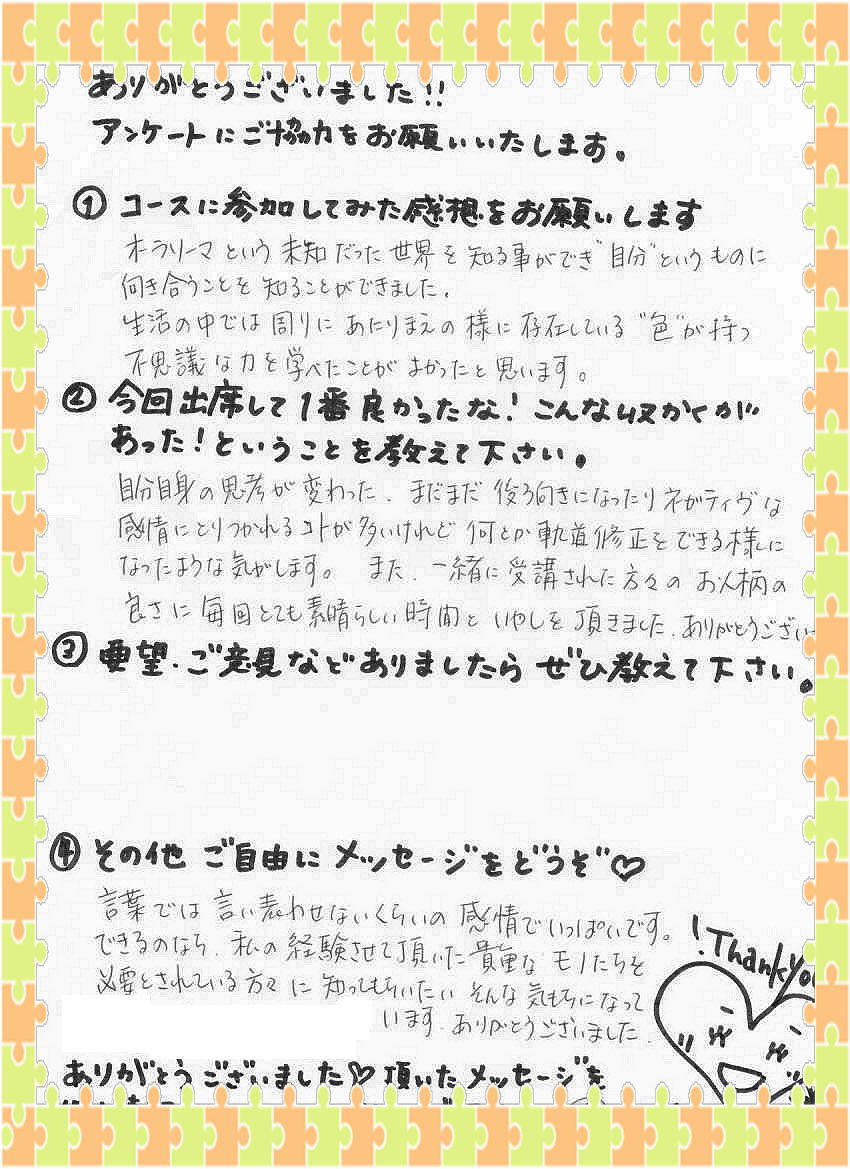 ありがとうございました!!
アンケートにご協力をお願いいたします。
① コースに参加してみた感想をお願いします
オーラソーマという未知だった世界を知る事ができ"自分"というものに
向き合うことを知ることができました。
生活の中では周りにあたりまえの様に存在している"色"が持つ
不思議な力を学べたことがよかったと思います。
② 今回出席して1番良かったな!こんな収かくが
あった!ということを教えて下さい。
自分自身の思考が変わった。まだまだ後ろ向きになったりネガティヴな
感情にとりつかれるコトが多いけれど何とか軌道修正をできる様に
なったような気がします。また、一緒に受講された方々のお人柄の
良さに毎回とても素晴らしい時間といやしを頂きました。ありがとうござい
③ 要望・ご意見などありましたらぜひ教えて下さい。
④ その他 ご自由にメッセージをどうぞ♡
言葉では言い表わせないくらいの感情でいっぱいです。
できるのなら、私の経験させて頂いた貴重なモノたちを
必要とされている方々に知ってもらいたいそんな気もちになって
います。ありがとうございました。
! Thank You
ありがとうございました♡頂いたメッセージを